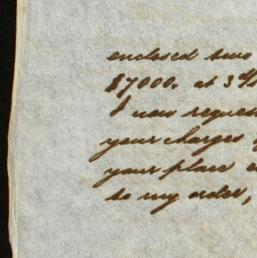 enclosed two
$7000. at 3
I now reques
your charges
your place
to my order,